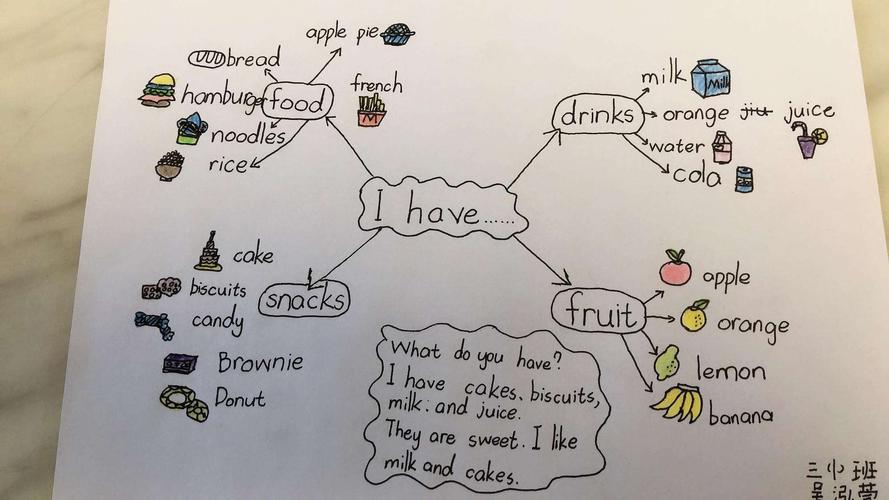 apple pie
bread
hamburger
food
french
M
noodles
rice
milk
Milk
drinks
orange jiu juice
water
cola
I have......
cake
biscuits
snacks
candy
Brownie
Donut
apple
fruit
orange
lemon
banana
What do you have?
I have cakes、biscuits,
milk: and juice.
They are sweet. I like
milk and cakes.